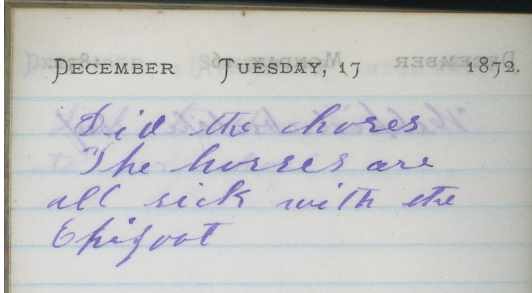 DECEMBER TUESDAY, 17 1872.
Did the chores
The horses are
all sick with the
Epizoot